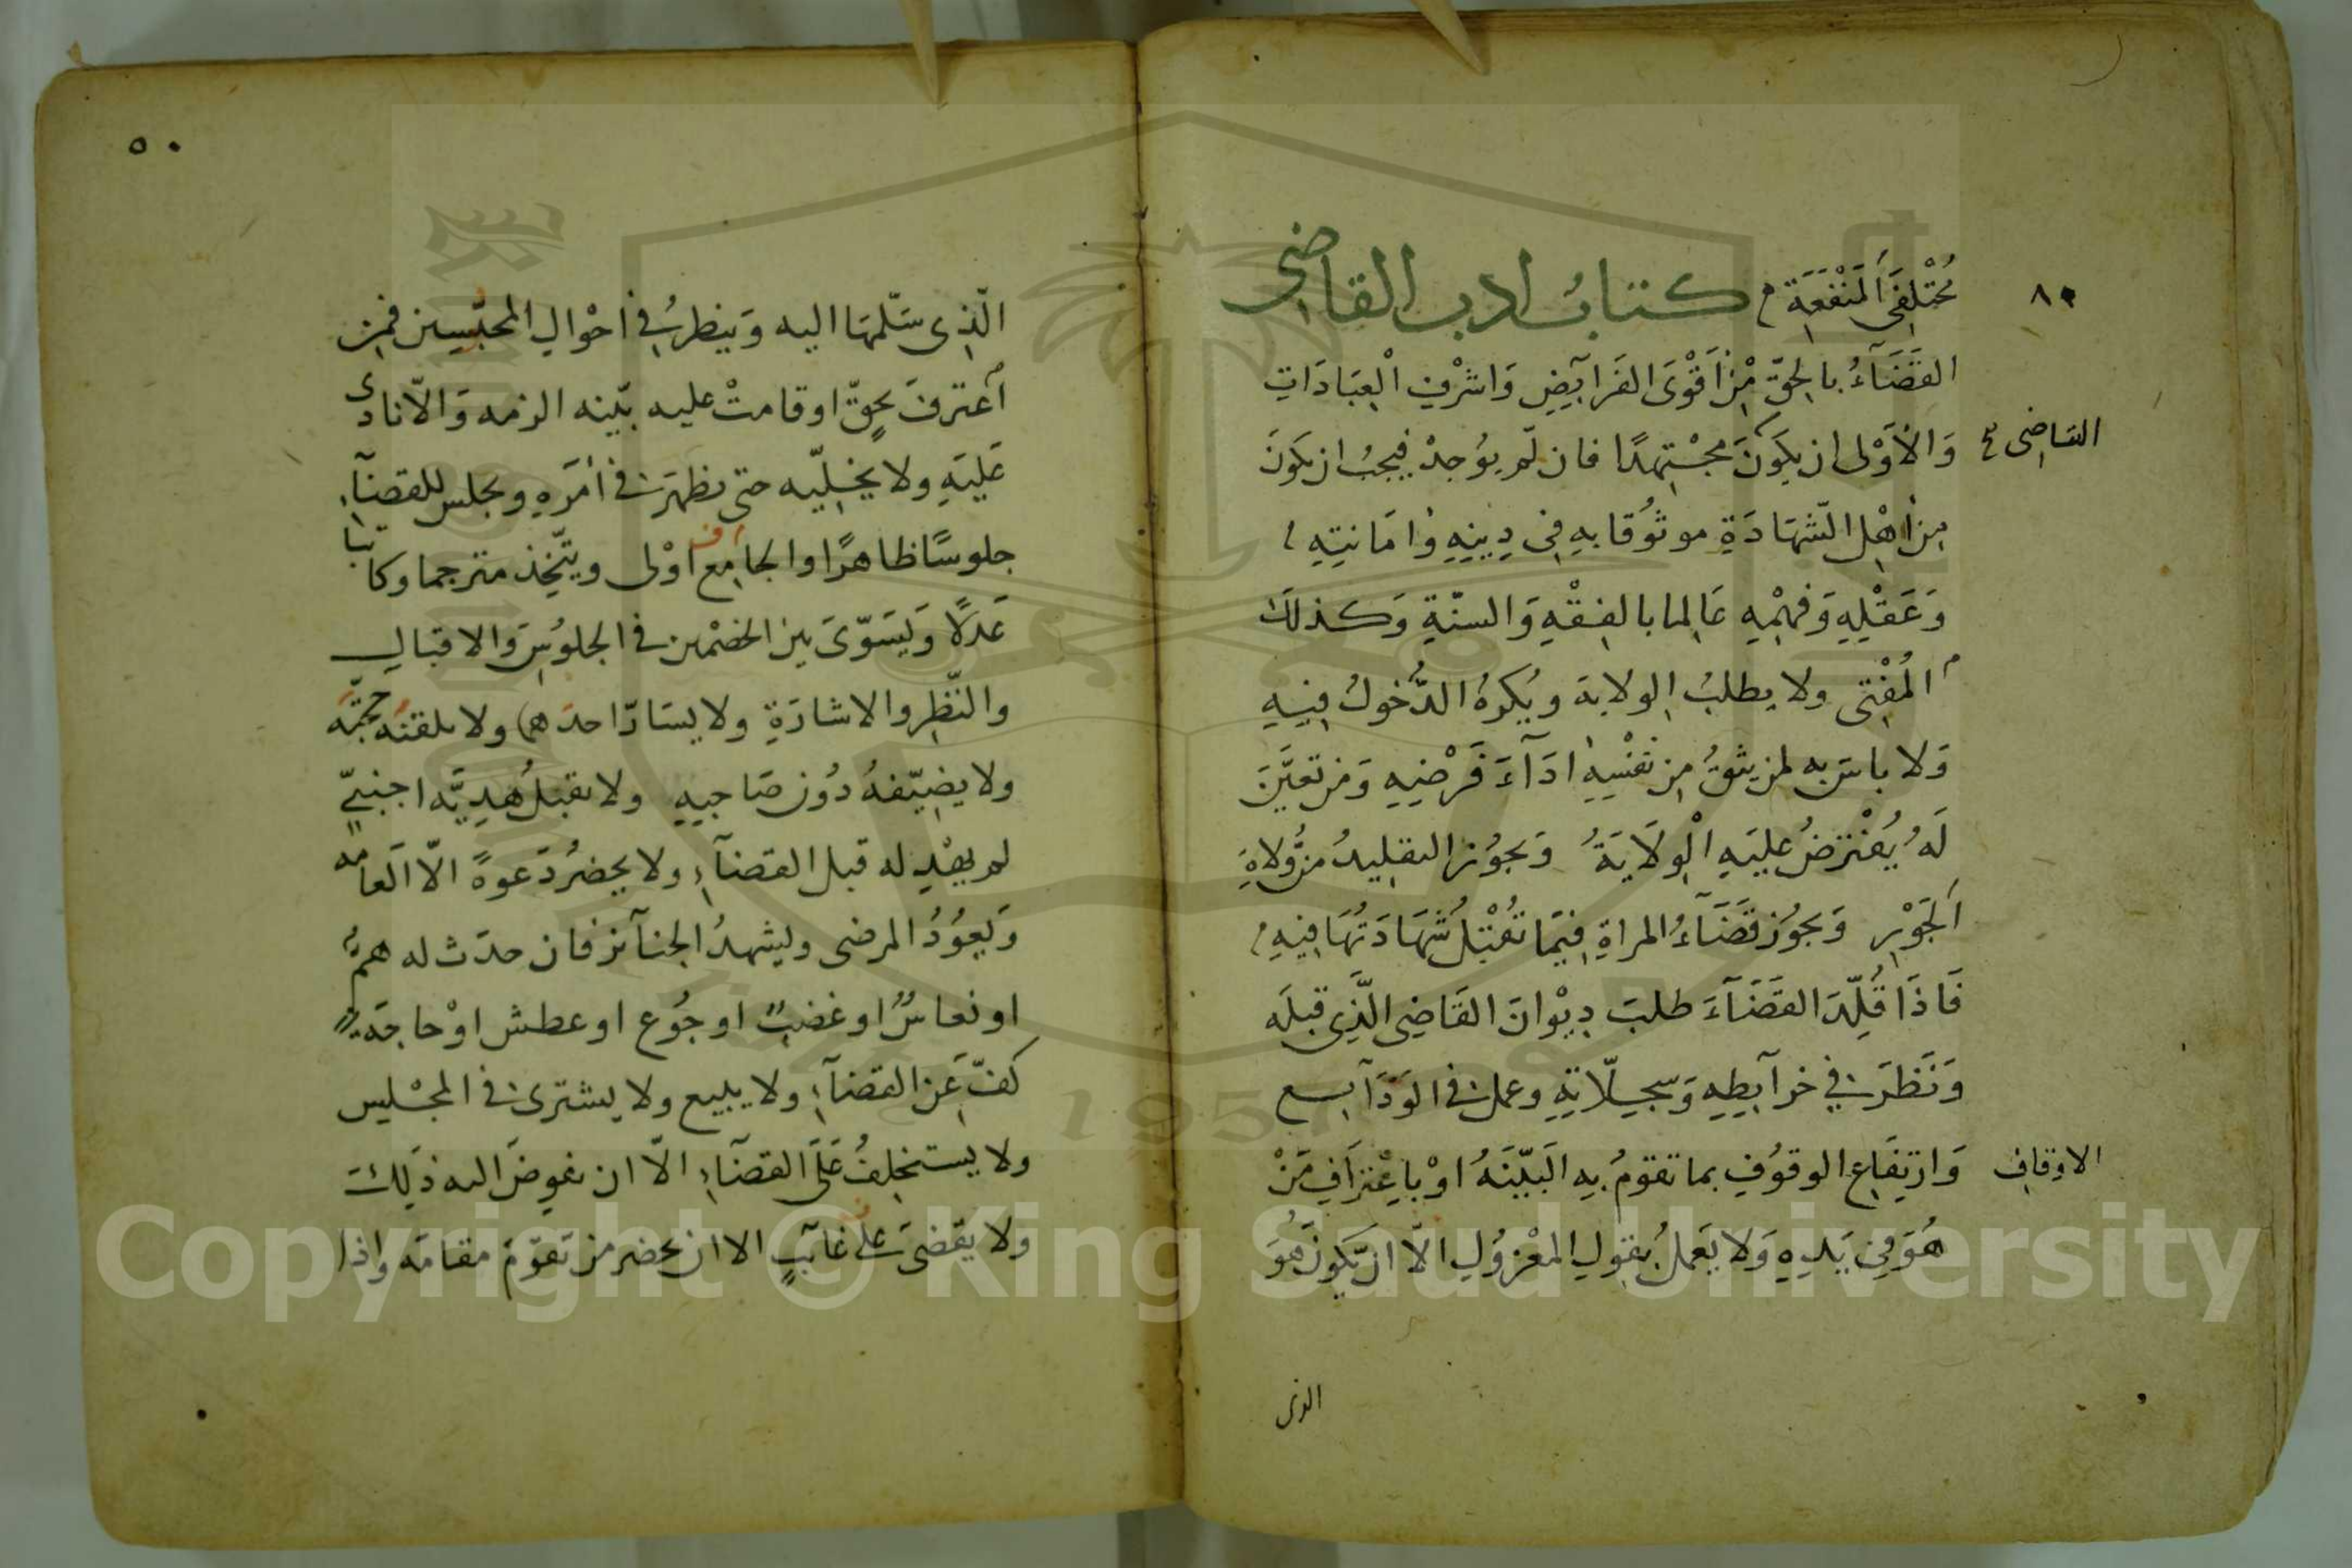 مُخْتَلِفَىِ الْمَنْفَعَةِ كتابُ ادب القاضى
٨٩
القَضَآءُ بالحقّ مِنْ اَقْوَى الفَرآيضِ وَاشْرفِ الْعِبَادَاتِ
القاضى
وَالأَوْلى ان يكَونَ مُجْتهِدًا فان لَم يوُجدْ فيجبُ ان يكَونَ
مِن اَهْلِ الشّهَادَةِ موثوُقا بهِ فى دِينِهِ وَامَانتِهِ
وَعَقْلِهِ وَفهْمِهِ عَالما بالفِقْهِ وَالسنّةِ وَكذلكَ
المُفْتى ولا يطلبُ الولاية ويُكرهُ الدُّخولُ فِيهِ
وَلا باسَ به لمن يثقُ مِن نفْسِهِ ادَآءَ فَرْضِهِ وَمن تعَيَّنَ
لَهُ يُفْتَرضُ عليَهِ الْوِلَايَةُ وَيجوُز التقليدُ من وُّلاةِ
الجَوْرِ وَيجوُز قَضَآءُ المراةِ فِيمَا تُقْبَلُ شَهَادَتُهَا فِيهِ
فَاذَا قُلِّدَ القَضَآءَ طلبَ دِيْوانَ القَاضِى الَّذِى قبلَه
وَنَظرَ فى خرآيطِهِ وَسِجِلّاتِهِ وعملَ فى الوَدَآيع
الاوقاف
وَارتِفَاعِ الوقوُفِ بما تقومُ بِهِ البَيّنَهُ اوْ باِعْترَافِ مَنْ
هُوَ فِى يَدِهِ وَلا يَعملُ بقولِ المعْزوُلِ الّا ان يّكوُنَ هُوَ
الذى
٥٠
الّذِى سَلّمهَا اليه وَينظرُ فى احْوالِ المحبّسِين فمن
اعترفَ بحقٍّ او قامتْ عليه بيّنه الزمه وَالّا نادى
عَليَهِ ولا يخلِّيه حتى يظهرَ فى امَرَهِ ويجلس للقضآء
جلوسًا ظاهرًا والجامع اوْلى ويتّخذ مترجما وكاتبا
عَدلًا وَيسَوّىَ بين الخصْمين فى الجلوُسِ وَالاقبالِ
والنّظرِ والاشارَةِ ولا يسَارّ احدَهما ولا يلقنُه حجّتَه
ولا يضِيّفهُ دوُن صَاحبِهِ ولا يقبلُ هدِيَّه اجنبىّ
لم يهْدِ له قبل القضآءِ ولا يحضرُ دَعوةً الّا العامه
وَيعوُدُ المرضى ويشهدُ الجنآئز فان حدَث له همٌّ
او نعاسٌ او غضبٌ او جوُع او عطش اوْ حاجَه
كفّ عَن القضآءِ ولا يبيع ولا يشترى فى المجْلسِ
ولا يستخلِفُ عَلَى القضَآءِ الّا ان يفوضَ اليه ذلِكَ
ولا يقضىَ على غآئبٍ الا ان يحضر من تقوّمَ مقامَه واذا
Copyright © King Saud University
1957